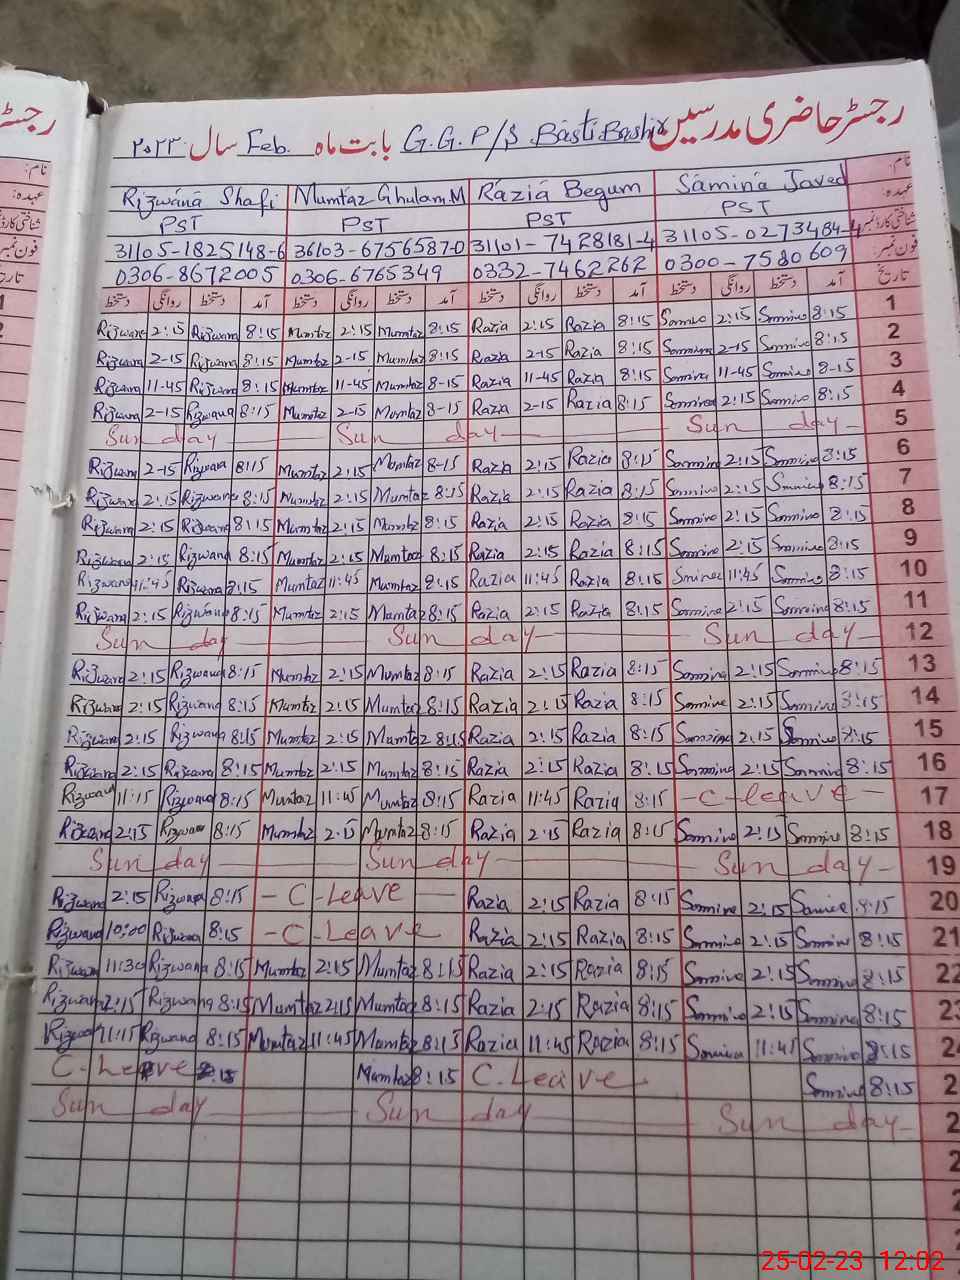 رجسٹر حاضری مدرسین G.G.P/S Basti Bashir بابت ماہ Feb. سال ۲۰۲۳
نام:
Rizwana Shafi Mumtaz Ghulam.M Razia Begum Samina Javed
عہدہ:
PST PST PST PST
شناختی کارڈ نمبر
31105-1825148-6 36103-6756587-0 31101-7428181-4 31105-0273484-4
فون نمبر:
0306-8672005 0306-6765349 0332-7462262 0300-7580609
تاریخ آمد دستخط روانگی دستخط آمد دستخط روانگی دستخط آمد دستخط روانگی دستخط آمد دستخط روانگی دستخط
Rizwana 2:15 Rizwana 8:15 Mumtaz 2:15 Mumtaz 8:15 Razia 2:15 Razia 8:15 Samina 2:15 Samina 8:15 1
Rizwana 2-15 Rizwana 8:15 Mumtaz 2-15 Mumtaz 8:15 Razia 2-15 Razia 8:15 Samina 2-15 Samina 8:15 2
Rizwana 11-45 Rizwana 8:15 Mumtaz 11-45 Mumtaz 8-15 Razia 11-45 Razia 8:15 Samina 11-45 Samina 8-15 3
Rizwana 2-15 Rizwana 8:15 Mumtaz 2-15 Mumtaz 8-15 Razia 2-15 Razia 8:15 Samina 2:15 Samina 8:15 4
Sun day Sun day Sun day 5
Rizwana 2-15 Rizwana 8:15 Mumtaz 2:15 Mumtaz 8-15 Razia 2:15 Razia 8:15 Samina 2:15 Samina 8:15 6
Rizwana 2:15 Rizwana 8:15 Mumtaz 2:15 Mumtaz 8:15 Razia 2:15 Razia 8:15 Samina 2:15 Samina 8:15 7
Rizwana 2:15 Rizwana 8:15 Mumtaz 2:15 Mumtaz 8:15 Razia 2:15 Razia 8:15 Samina 2:15 Samina 8:15 8
Rizwana 2:15 Rizwana 8:15 Mumtaz 2:15 Mumtaz 8:15 Razia 2:15 Razia 8:15 Samina 2:15 Samina 8:15 9
Rizwana 11:45 Rizwana 8:15 Mumtaz 11:45 Mumtaz 8:15 Razia 11:45 Razia 8:15 Samina 11:45 Samina 8:15 10
Rizwana 2:15 Rizwana 8:15 Mumtaz 2:15 Mumtaz 8:15 Razia 2:15 Razia 8:15 Samina 2:15 Samina 8:15 11
Sun day Sun day Sun day 12
Rizwana 2:15 Rizwana 8:15 Mumtaz 2:15 Mumtaz 8:15 Razia 2:15 Razia 8:15 Samina 2:15 Samina 8:15 13
Rizwana 2:15 Rizwana 8:15 Mumtaz 2:15 Mumtaz 8:15 Razia 2:15 Razia 8:15 Samina 2:15 Samina 8:15 14
Rizwana 2:15 Rizwana 8:15 Mumtaz 2:15 Mumtaz 8:15 Razia 2:15 Razia 8:15 Samina 2:15 Samina 8:15 15
Rizwana 2:15 Rizwana 8:15 Mumtaz 2:15 Mumtaz 8:15 Razia 2:15 Razia 8:15 Samina 2:15 Samina 8:15 16
Rizwana 11:15 Rizwana 8:15 Mumtaz 11:45 Mumtaz 8:15 Razia 11:45 Razia 8:15 -C-leave- 17
Rizwana 2:15 Rizwana 8:15 Mumtaz 2:15 Mumtaz 8:15 Razia 2:15 Razia 8:15 Samina 2:15 Samina 8:15 18
Sun day Sun day Sun day 19
Rizwana 2:15 Rizwana 8:15 -C-Leave Razia 2:15 Razia 8:15 Samina 2:15 Samina 8:15 20
Rizwana 10:00 Rizwana 8:15 -C-Leave Razia 2:15 Razia 8:15 Samina 2:15 Samina 8:15 21
Rizwana 11:30 Rizwana 8:15 Mumtaz 2:15 Mumtaz 8:15 Razia 2:15 Razia 8:15 Samina 2:15 Samina 8:15 22
Rizwana 2:15 Rizwana 8:15 Mumtaz 2:15 Mumtaz 8:15 Razia 2:15 Razia 8:15 Samina 2:15 Samina 8:15 23
Rizwana 11:15 Rizwana 8:15 Mumtaz 11:45 Mumtaz 8:15 Razia 11:45 Razia 8:15 Samina 11:45 Samina 8:15 24
C.Leave 8:15 Mumtaz 8:15 C.Leave Samina 8:15 2
Sun day Sun day Sun day 2
2
2
25-02-23 12:02